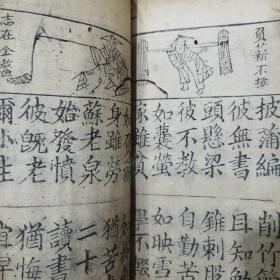 負薪不
披蒲編 削竹
彼無書 且知勉
頭懸梁 錐刺股
彼不教 自勤苦
如囊螢 如映雪
家雖貧 學不輟
志在金鰲
身雖勞 猶苦
蘇老泉 二十
始發憤 讀書
彼既老 猶悔
爾小生 宜早